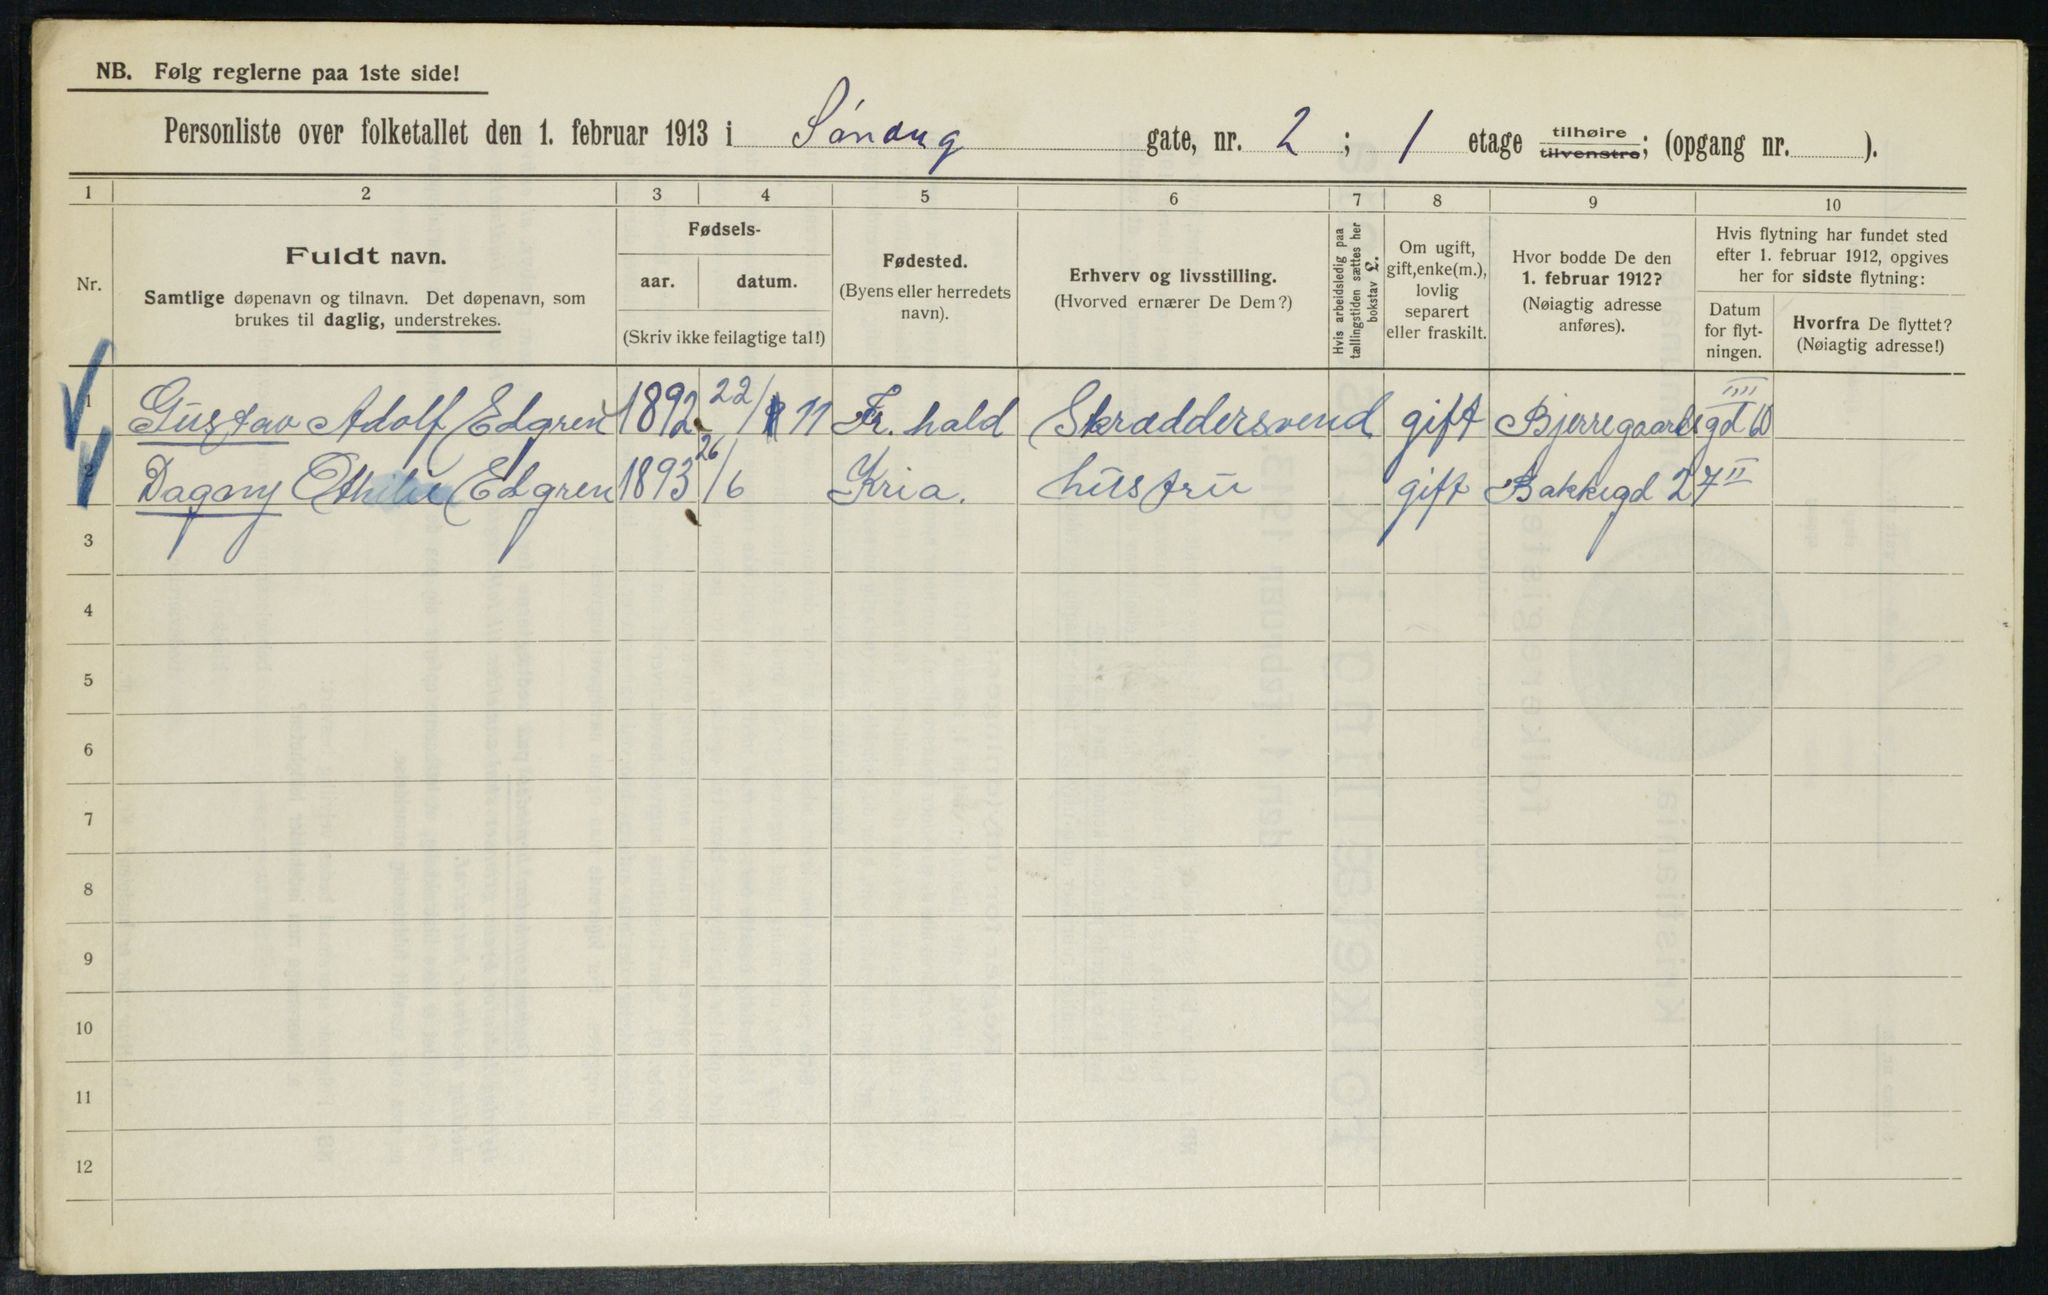 NB. Følg reglerne paa 1ste side!
Personliste over folketallet den 1. februar 1913 i gate, nr. 2 ; 1 etage tilhøire tilvenstre; (opgang nr. ).
1 2 3 4 5 6 7 8 9 10
Nr.
Fuldt navn.
Samtlige døpenavn og tilnavn. Det døpenavn, som
brukes til daglig, understrekes.
Fødsels-
aar. datum.
(Skriv ikke feilagtige tal!)
Fødested.
(Byens eller herredets
navn).
Erhverv og livsstilling.
(Hvorved ernærer De Dem?)
Hvis arbeidsledig paa
tællingstiden sættes her
bokstav L.
Om ugift,
gift, enke(m.),
lovlig
separert
eller fraskilt.
Hvor bodde De den
1. februar 1912?
(Nøiagtig adresse
anføres).
Hvis flytning har fundet sted
efter 1. februar 1912, opgives
her for sidste flytning:
Datum
for flyt-
ningen.
Hvorfra De flyttet?
(Nøiagtig adresse!)
1 Gustav Adolf Edgren 1892 22/11 Fr. hald Skræddersvend gift Bjerregaards gd 60 IIII
2 Dagny Othilie Edgren 1893 26/6 Kria. hustru gift Bakkegd 27 II
3
4
5
6
7
8
9
10
11
12